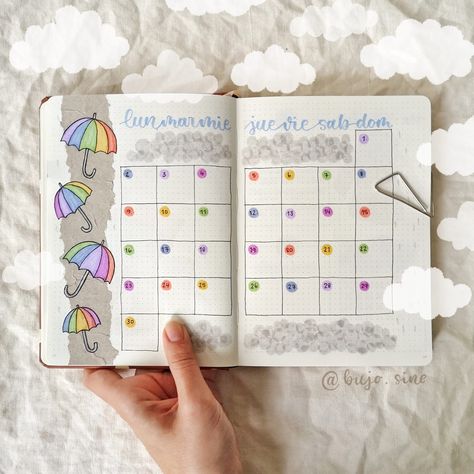 lun mar mie jue vie sab dom
1
2 3 4 5 6 7 8
9 10 11 12 13 14 15
16 17 18 19 20 21 22
23 24 25 26 27 28 29
30
@bujo.sine